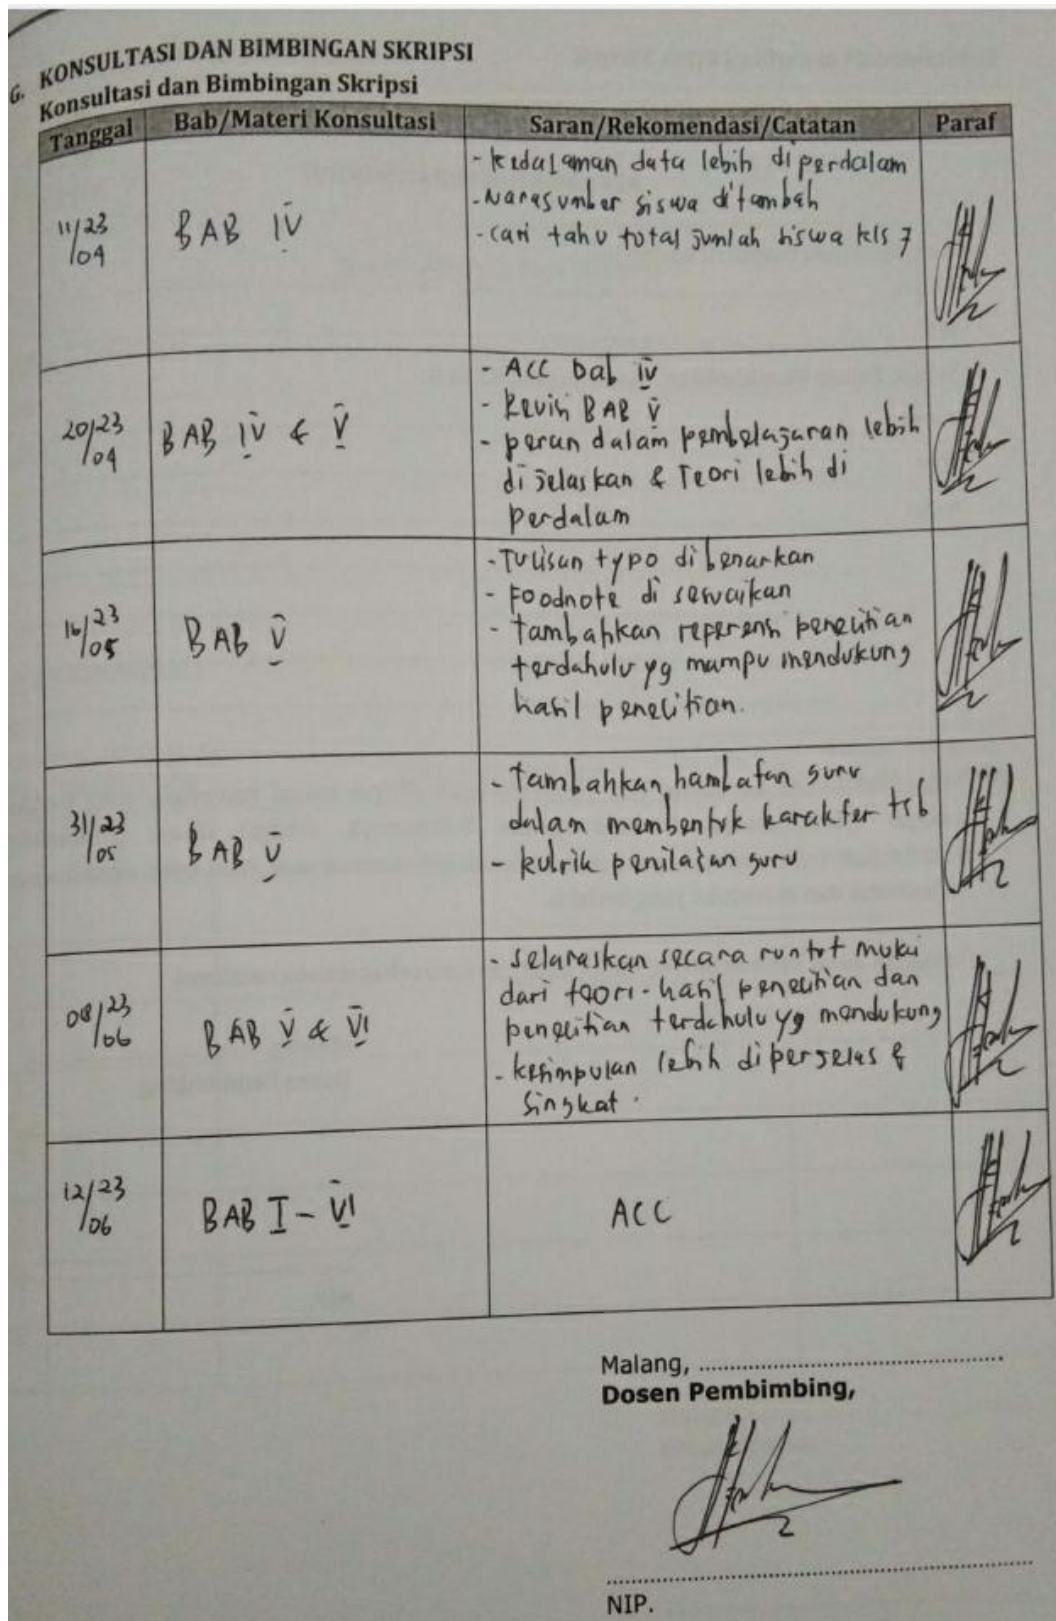 G. KONSULTASI DAN BIMBINGAN SKRIPSI
Konsultasi dan Bimbingan Skripsi
Tanggal Bab/Materi Konsultasi Saran/Rekomendasi/Catatan Paraf
11/23
/04
BAB IV
- kedalaman data lebih diperdalam
- Narasumber siswa ditambah
- cari tahu total jumlah siswa kls 7
20/23
/04
BAB IV & V
- ACC bab IV
- Revisi BAB V
- peran dalam pembelajaran lebih
dijelaskan & Teori lebih di
perdalam
16/23
/05
BAB V
- Tulisan typo dibenarkan
- Foodnote di sesuaikan
- tambahkan reperensi penelitian
terdahulu yg mampu mendukung
hasil penelitian.
31/23
/05
BAB V
- tambahkan hambatan guru
dalam membentuk karakter tsb
- kubrik penilaian guru
08/23
/06
BAB V & VI
- selaraskan secara runtut mulai
dari teori - hasil penelitian dan
penelitian terdahulu yg mendukung
- kesimpulan lebih diperjelas &
singkat.
12/23
/06
BAB I - VI
ACC
Malang, ....................................................
Dosen Pembimbing,
NIP.